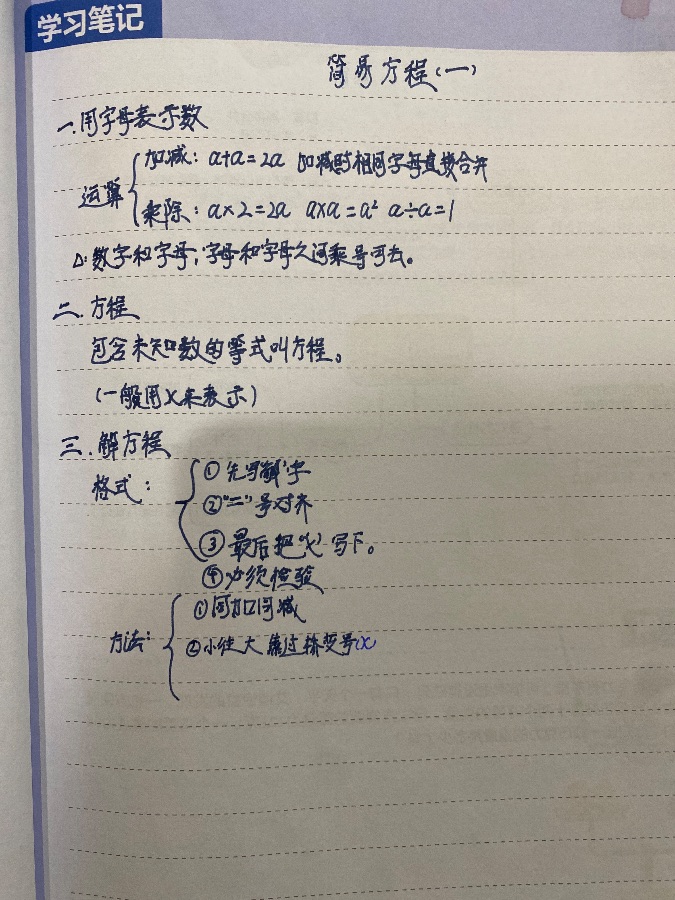 学习笔记
简易方程(一)
一.用字母表示数
加减：a+a=2a 加减时相同字母直接合并
运算
乘除：a×2=2a a×a=a² a÷a=1
△:数字和字母,字母和字母之间乘号可去。
二.方程
包含未知数的等式叫方程。
(一般用x来表示)
三.解方程
格式：
①先写“解”字
②“=”号对齐
③最后把“x”写下。
④必须检验
方法：
①同加同减
②小往大 搬过桥变号(x)